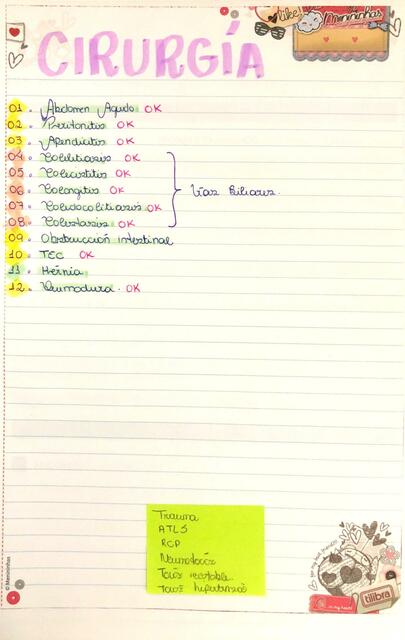 like!
Menininhas
CIRURGÍA
01. Abdomen Agudo OK
02. Peritonitis OK
03. Apendicitis OK
04. Colelitiasis OK
05. Colecistitis OK
06. Colangitis OK
07. Coledocolitiasis OK
08. Colestasis OK
Vías Biliares.
09. Obstrucción intestinal
10. TEC OK
11. Hérnia
12. Quemadura. OK
Trauma
ATLS
RCP
Neumotorax
Torax inestable
Torax hipertensivo
© Menininhas
tilibra